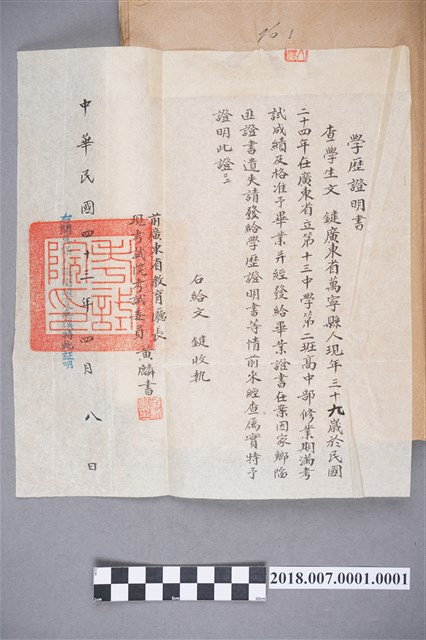 學歷證明書
查學生文 鍵廣東省萬寧縣人現年三十九歲於民國
二十四年任廣東省立第十三中學第二班高中部修業期滿考
試成績及格准予畢業并經發給畢業證書在業因家鄉陷
匪證書遺失請發給學歷證明書等情前來經查屬實特予
證明此證
右給文 鍵收執
前廣東省教育廳長
現考試院考試委員 黃麟書
中華民國四十三年四月八日
2018.007.0001.0001